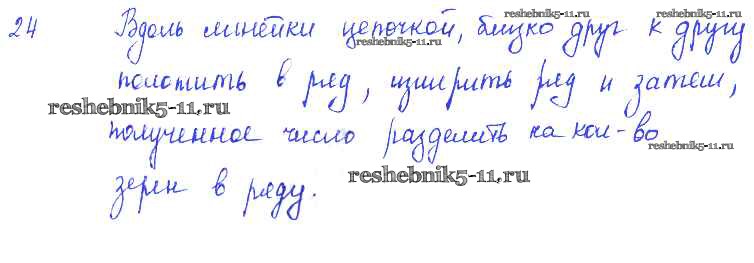 24 Вдоль линейки цепочкой, близко друг к другу
положить в ряд, измерить ряд и затем,
полученное число разделить на кол-во
зерен в ряду.
reshebnik5-11.ru
reshebnik5-11.ru
reshebnik5-11.ru
reshebnik5-11.ru
reshebnik5-11.ru
reshebnik5-11.ru